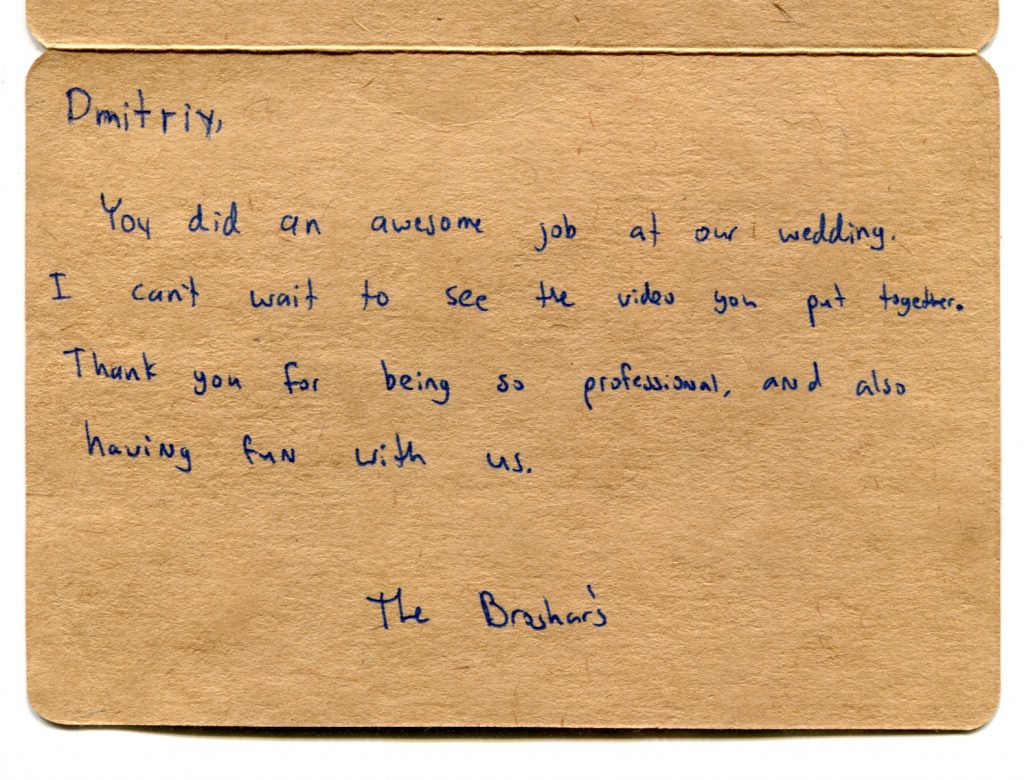 Dmitriy,
You did an awesome job at our wedding.
I can't wait to see the video you put together.
Thank you for being so professional, and also
having fun with us.
The Brashar's